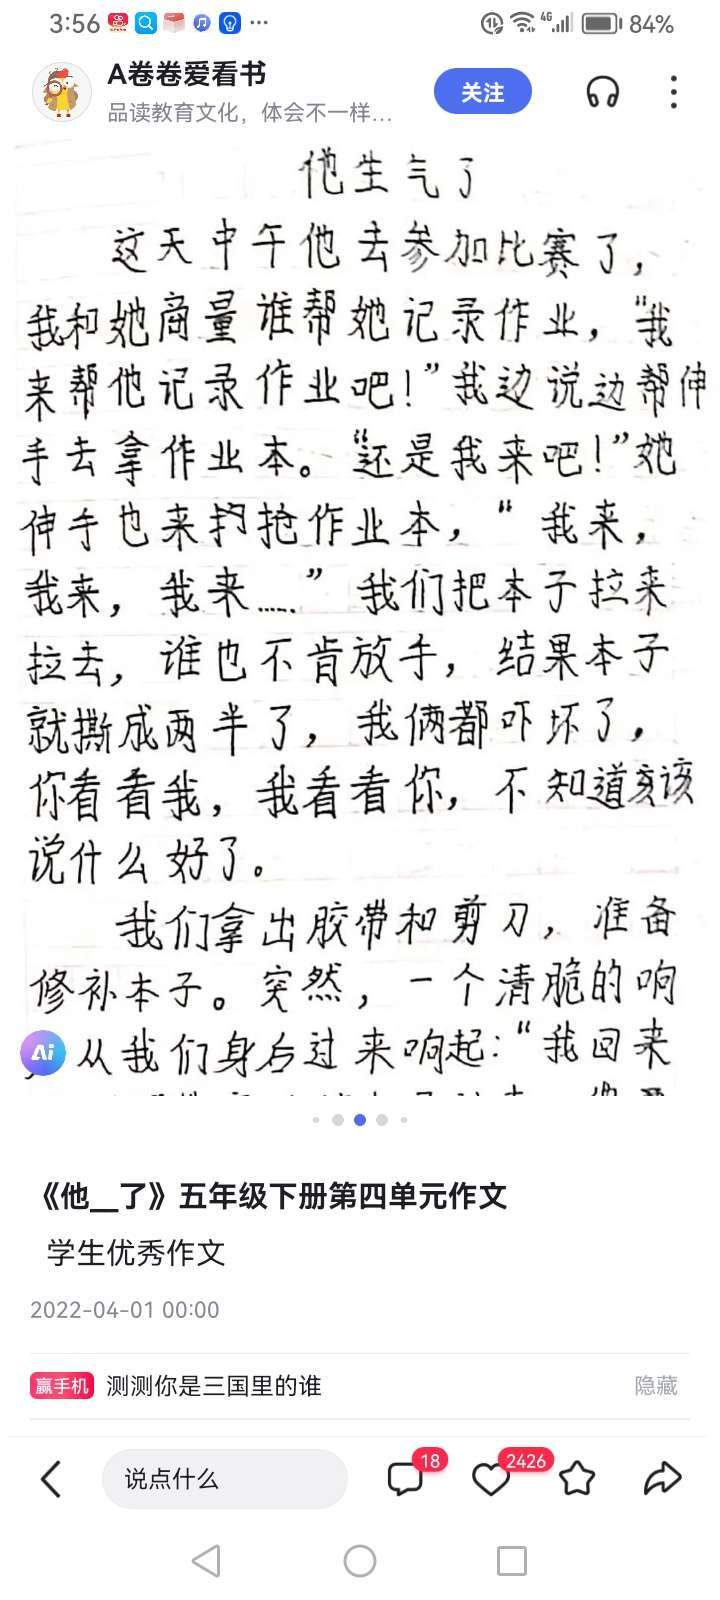 3:56
4G
84%
A卷卷爱看书
品读教育文化，体会不一样…
关注
他生气了
这天中午他去参加比赛了，
我和她商量谁帮她记录作业，“我
来帮他记录作业吧！”我边说边帮伸
手去拿作业本。“还是我来吧！”她
伸手也来抢作业本，“我来，
我来，我来……”我们把本子拉来
拉去，谁也不肯放手，结果本子
就撕成两半了，我俩都吓坏了，
你看看我，我看看你，不知道该
说什么好了。
我们拿出胶带和剪刀，准备
修补本子。突然，一个清脆的响
从我们身后过来响起：“我回来
Ai
《他__了》五年级下册第四单元作文
学生优秀作文
2022-04-01 00:00
赢手机 测测你是三国里的谁 隐藏
说点什么
18
2426